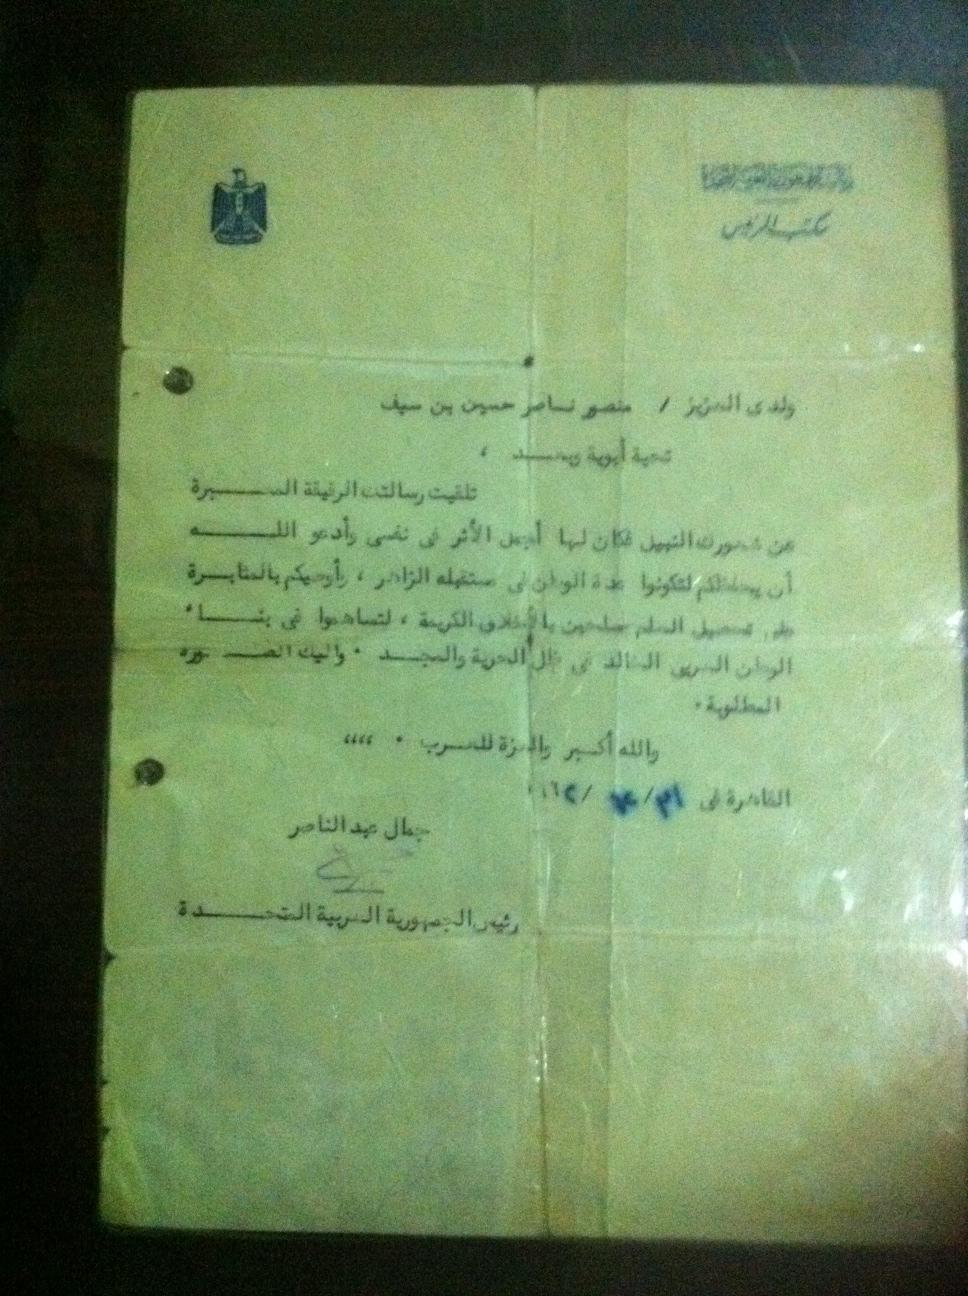 رئاسة الجمهورية العربية المتحدة
مكتب الرئيس
ولدى العزيز / منصور ناصر حسين بن سيف
تحية أبوية وبعد ،
تلقيت رسالتك الرقيقة المعبرة
عن شعورك النبيل فكان لها أجمل الأثر فى نفسى وأدعو الله
أن يحفظكم لتكونوا عدة الوطن فى مستقبله الزاهر ، وأوصيكم بالمثابرة
على تحصيل العلم متسلحين بالأخلاق الكريمة ، لتساهموا فى بناء
الوطن العربى الخالد فى ظل الحرية والمجد ٠ واليك الصورة
المطلوبة ٠
والله أكبر والعزة للعرب ٠ ،،،،
القاهرة فى ٣١ / / ١٩٦٢
جمال عبد الناصر
رئيس الجمهورية العربية المتحدة